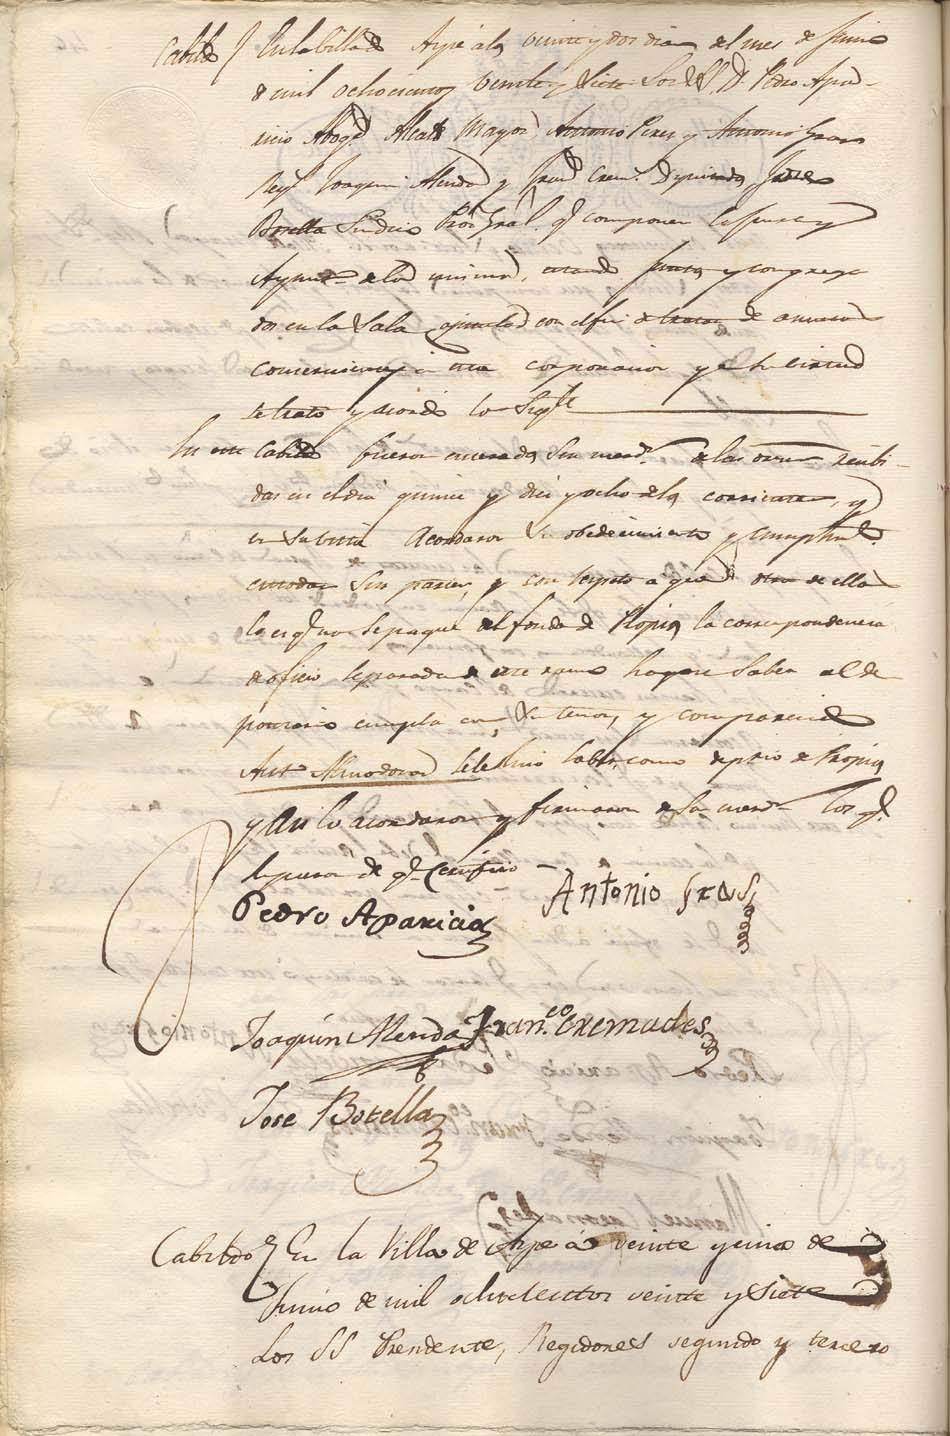 Cabildo En la Villa de Aspe a los veinte y dos dias del mes de Junio
de mil ochocientos veinte y siete Los SS. Dn. Pedro Apari-
cio Abogdo Alcalde Mayor, Antonio Perez y Antonio Gras
Regs Joaquin Alenda y Franco Crem. Diputados Jose
Botella Sindico Pror Gral. qe componen
Aynto de la misma, estando juntos y congrega
dos en la Sala Capitular con el fin de tratar de asuntos
concernientes a esta corporacion y en su virtud
se trato y acordo lo Sigte
En este Cabildo fueron enterados sus mercds. de las ordenes recibi-
das en el dia quince y diez y ocho de los corrientes, y
en su vista acordaron su obedecimiento y cumplimto.
en todas sus partes, y con respeto a que una de ellas
lo es qe no se pague del fondo de Propios la correspondencia
de oficio separada de este ramo hagase saber al de
positario cumpla con su tenor, y comparecido
Anto Almodovar como deposito de Propios
y asi lo acordaron y firmaron de sus mercds los qe.
supieron de qe Certifico
Pedro Aparicio Antonio Gras
Joaquin Alenda Fran.co Cremades
Jose Botella
Cabildo En la Villa de Aspe a veinte y cinco de
Junio de mil ochocientos veinte y siete
Los SS Presidente, Regidores segundo y tercero